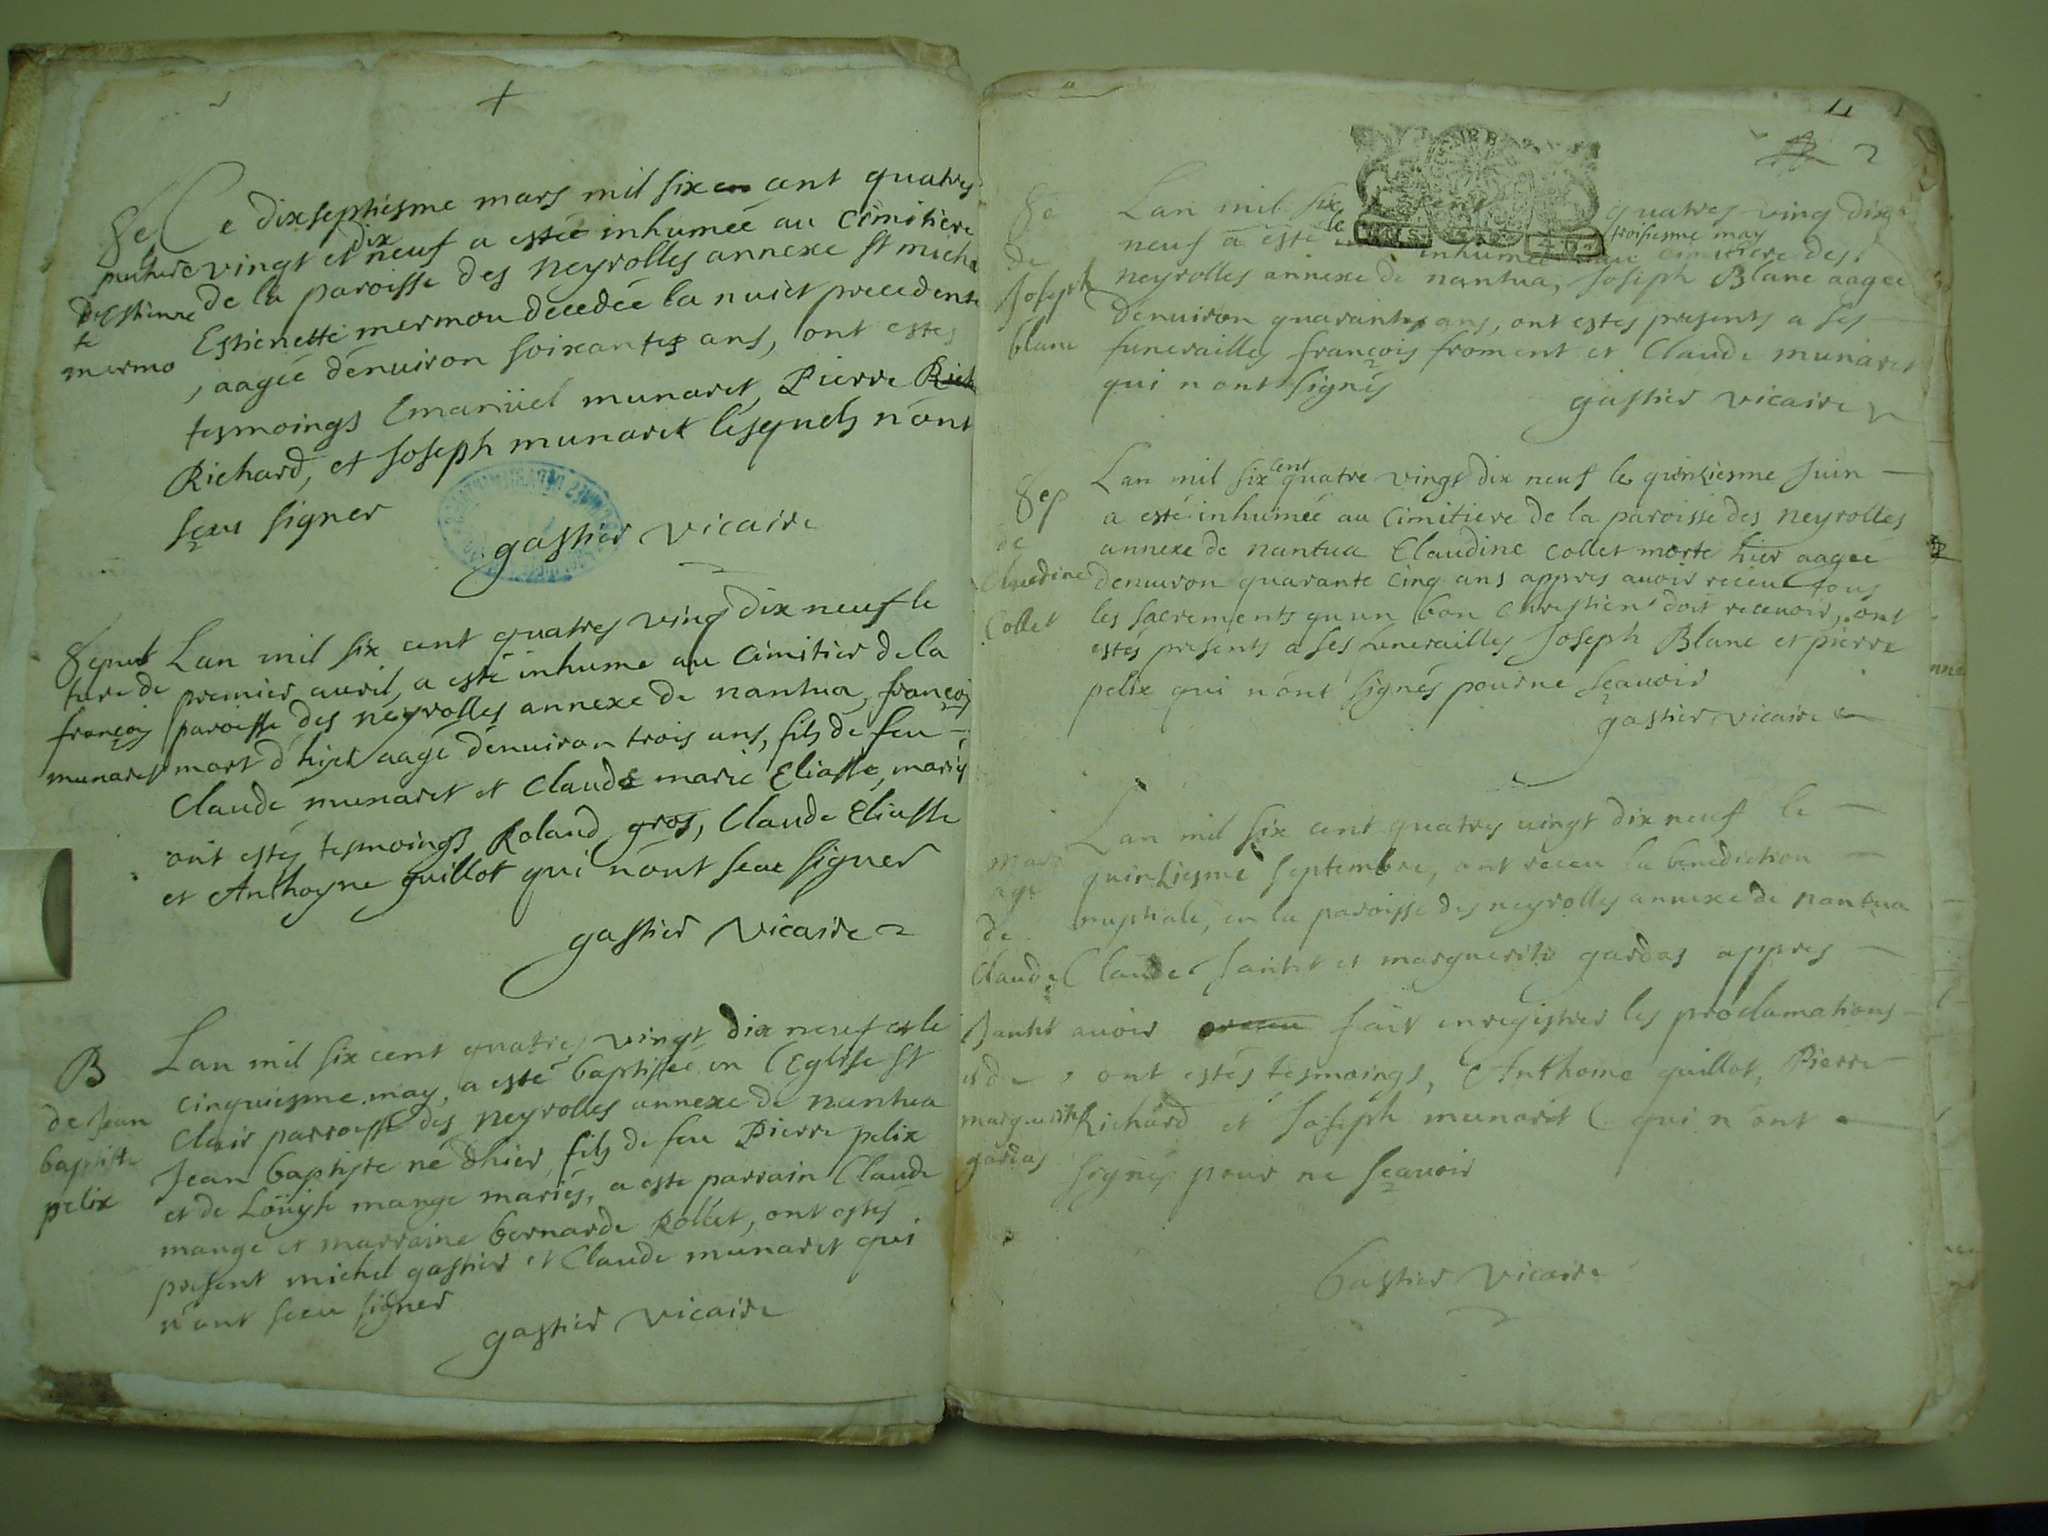 +
Se
pulture
d'Estienne
te
mermo
Ce dixseptiesme mars mil six cent quatres
vingt et dix neuf a estée inhumée au Cimitiere
de la paroisse des neyrolles annexe St miche
Estienette mermou decedée la nuict precedente
, aagée d'enuiron soixantes ans, ont estes
tesmoings Emanüel munaret, Pierre
Richard, et Joseph munaret lesquels n'ont
sçeu signer
gastier vicaire
Sepul
ture de
françois
munaret
Lan mil six cent quatres ving dix neuf le
premier auril, a esté inhume au cimitier de la
paroisse des neyrolles annexe de nantua, françois
mort d'hyer aagé d'enuiron trois ans, fils de feu
Claude munaret et Claude marie Eliasse, mariés
ont estés tesmoings Roland gros, Claude Eliasse
et Anthoyne guillot qui n'ont sceu signer
gastier vicaire
B
de Jean
baptiste
pelix
Lan mil six cent quatres vingt dix neuf et le
cinquiesme may, a esté baptisée en l'Eglise St
Clair parroisse des neyrolles annexe de nantua
Jean baptiste né d'hier, fils de feu Pierre pelix
et de Loüise mange mariés, a esté parrain Claude
mange et marraine bernarde Rollet, ont estes
present michel gastier et Claude munaret qui
n'ont sceu signer
gastier vicaire
4
2
Se
de
Joseph
blanc
Lan mil six cent quatres ving dix
neuf a esté le troisiesme may
inhumé au cimitiere des
neyrolles annexe de nantua, Joseph Blanc aagee
d'enuiron quarantes ans, ont estes presents a ses
funerailles françois froment et Claude munaret
qui n'ont signés
gastier vicaire
Sep
de
Claudine
Collet
Lan mil six cent quatre vingt dix neuf le quinziesme Juin
a esté inhumée au cimitiere de la paroisse des neyrolles
annexe de nantua Claudine Collet morte hier aagée
d'enuiron quarante cinq ans appres auoir receu tous
les sacrements qu'un bon Chrestien doit receuoir, ont
estés presents a ses funerailles Joseph Blanc et pierre
pelix qui n'ont signés pour ne sçauoir
gastier vicaire
Mari
age
de
Claude
Santet
et de
marguerite
gardas
Lan mil six cent quatres uingt dix neuf le
quinziesme septembre, ont receu la benediction
nuptiale, en la paroisse des neyrolles annexe de nantua
Claude santet et marguerite gardas appres
auoir fait enregistrer les proclamations
, ont estés tesmoings, Anthoine guillot, Pierre
Richard et Joseph munaret qui n'ont
signés pour ne sçauoir
Gastier vicaire